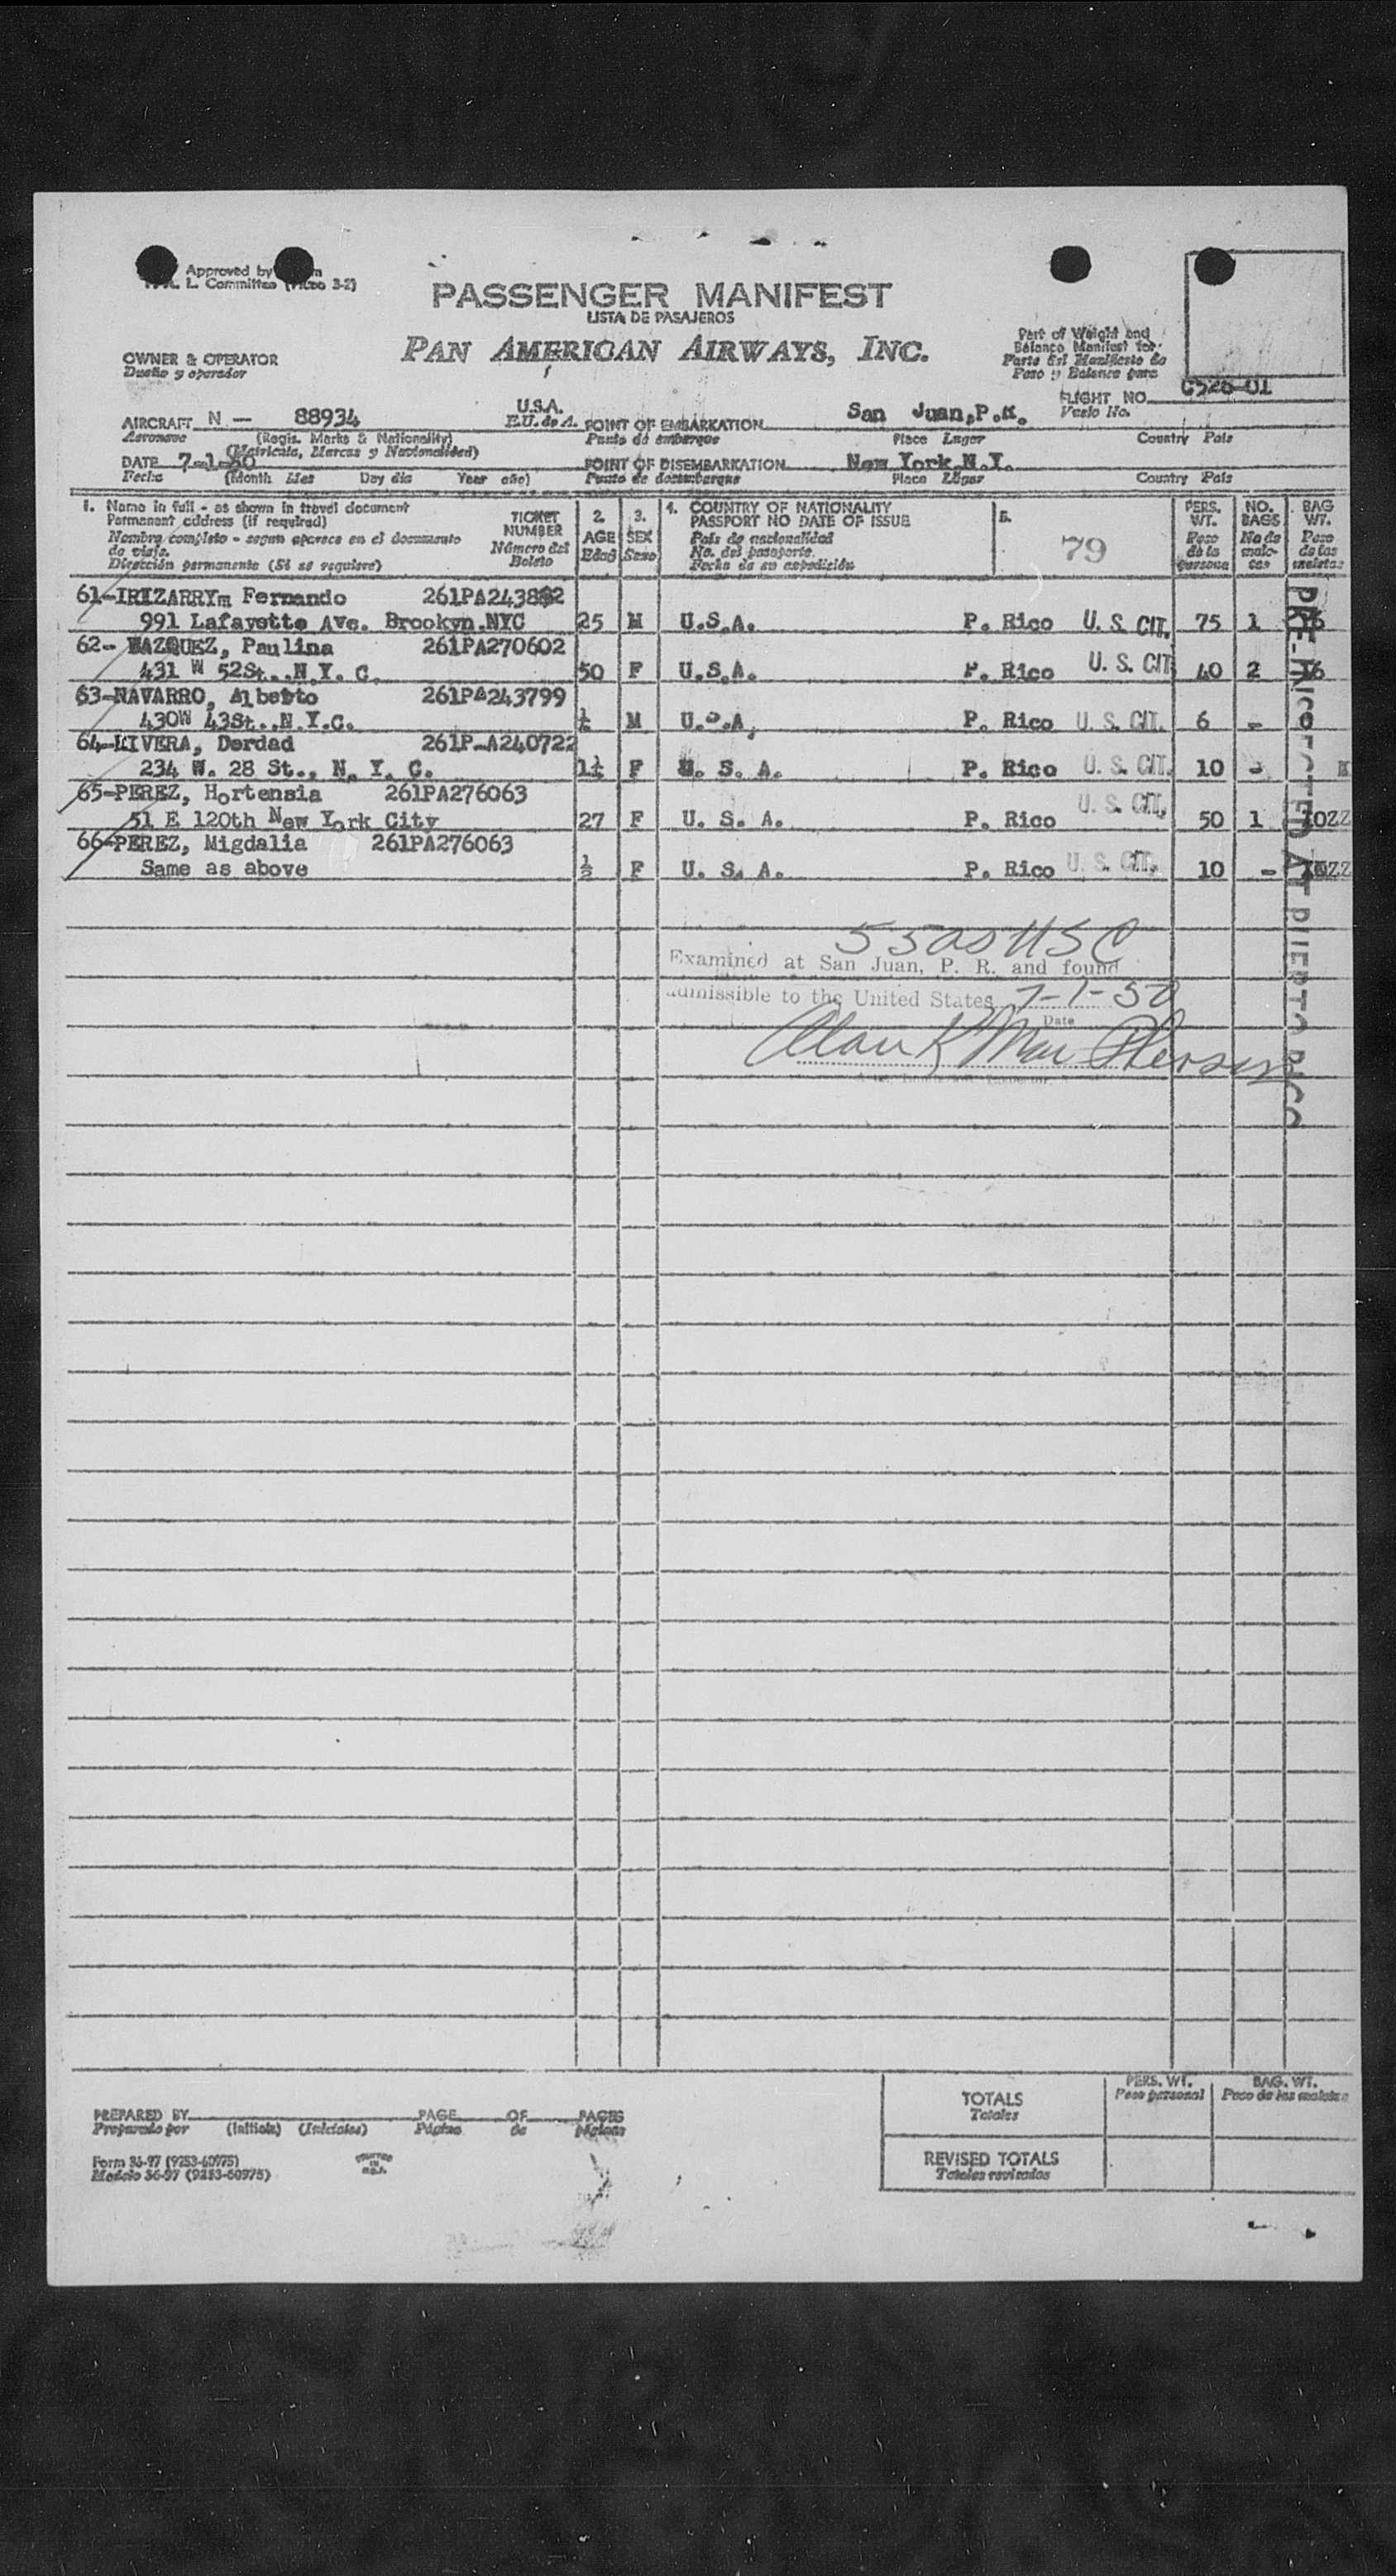 Approved by
L. Committee 3-2)
PASSENGER MANIFEST
LISTA DE PASAJEROS
PAN AMERICAN AIRWAYS, INC.
OWNER & OPERATOR
Dueño y operador
Part of Weight and
Balance Manifest for
Parte del Manifiesto de
Peso y Balance para
FLIGHT NO. C526-01
Vuelo No.
AIRCRAFT N - 88934 U.S.A. E.U. de A.
Aeronave (Regis. Marks & Nationality)
(Matricula, Marcas y Nacionalidad)
POINT OF EMBARKATION San Juan,P.R.
Punto de embarque Place Lugar Country Pais
DATE 7-1-50
Fecha (Month Mes Day dia Year año)
POINT OF DISEMBARKATION New York N.Y.
Punto de desembarque Place Lugar Country Pais
1. Name in full - as shown in travel document
Permanent address (if required)
Nombre completo - segun aparece en el documento
de viaje.
Dirección permanente (Si se requiere)
TICKET
NUMBER
Número del
Boleto
2.
AGE
Edad
3.
SEX
Sexo
4. COUNTRY OF NATIONALITY
PASSPORT NO DATE OF ISSUE
Pais de nacionalidad
No. del pasaporte.
Fecha de su expedición
5.
79
PERS.
WT.
Peso
de la
persona
NO.
BAGS
No de
male-
tas
BAG
WT.
Peso
de las
maletas
61-IRIZARRYm Fernando 261PA243882
991 Lafayette Ave. Brookyn.NYC 25 M U.S.A. P. Rico U. S. CIT. 75 1
62- VAZQUEZ, Paulina 261PA270602
431 W 52St..N.Y. C. 50 F U.S.A. P. Rico U. S. CIT 40 2 16
63-NAVARRO, Alberto 261PA243799
430W 43St..N.Y.C. M U.S.A. P. Rico U. S. CIT. 6 - 0
64-RIVERA, Dordad 261P-A240722
234 W. 28 St., N. Y. C. F U. S. A. P. Rico U. S. CIT. 10 -
65-PEREZ, Hortensia 261PA276063
51 E 120th New York City 27 F U. S. A. P. Rico U. S. CIT. 50 1
66-PEREZ, Migdalia 261PA276063
Same as above ½ F U. S. A. P. Rico U. S. CIT. 10 -
PRE-INSPECTED AT PUERTO RICO
55 USC
Examined at San Juan, P. R. and found
admissible to the United States 7-1-50
Date
Alan K MacPherson
TOTALS
Totales
PERS. WT.
Peso personal
BAG. WT.
Peso de las maletas
REVISED TOTALS
Totales revisados
PREPARED BY PAGE OF PAGES
Preparado por (Initials) (Iniciales) Página de páginas
Form 36-97 (9253-60975)
Modelo 36-97 (9253-60975)
PRINTED
IN
U.S.A.